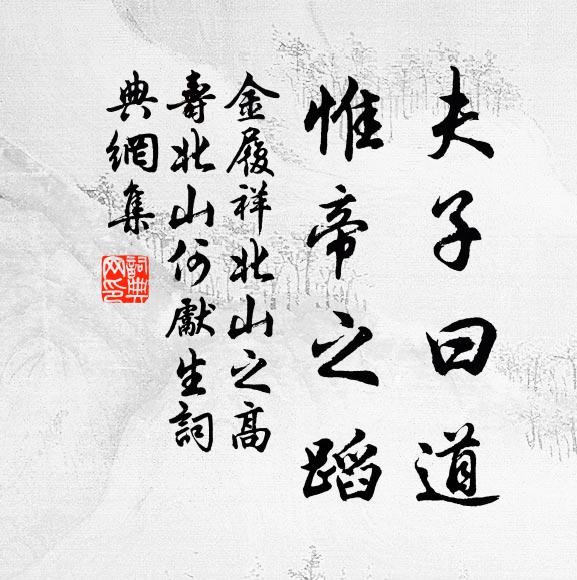 夫子曰道
惟帝之蹈
金履祥北山之高
壽北山何獻生詞
典網集
詞典網印